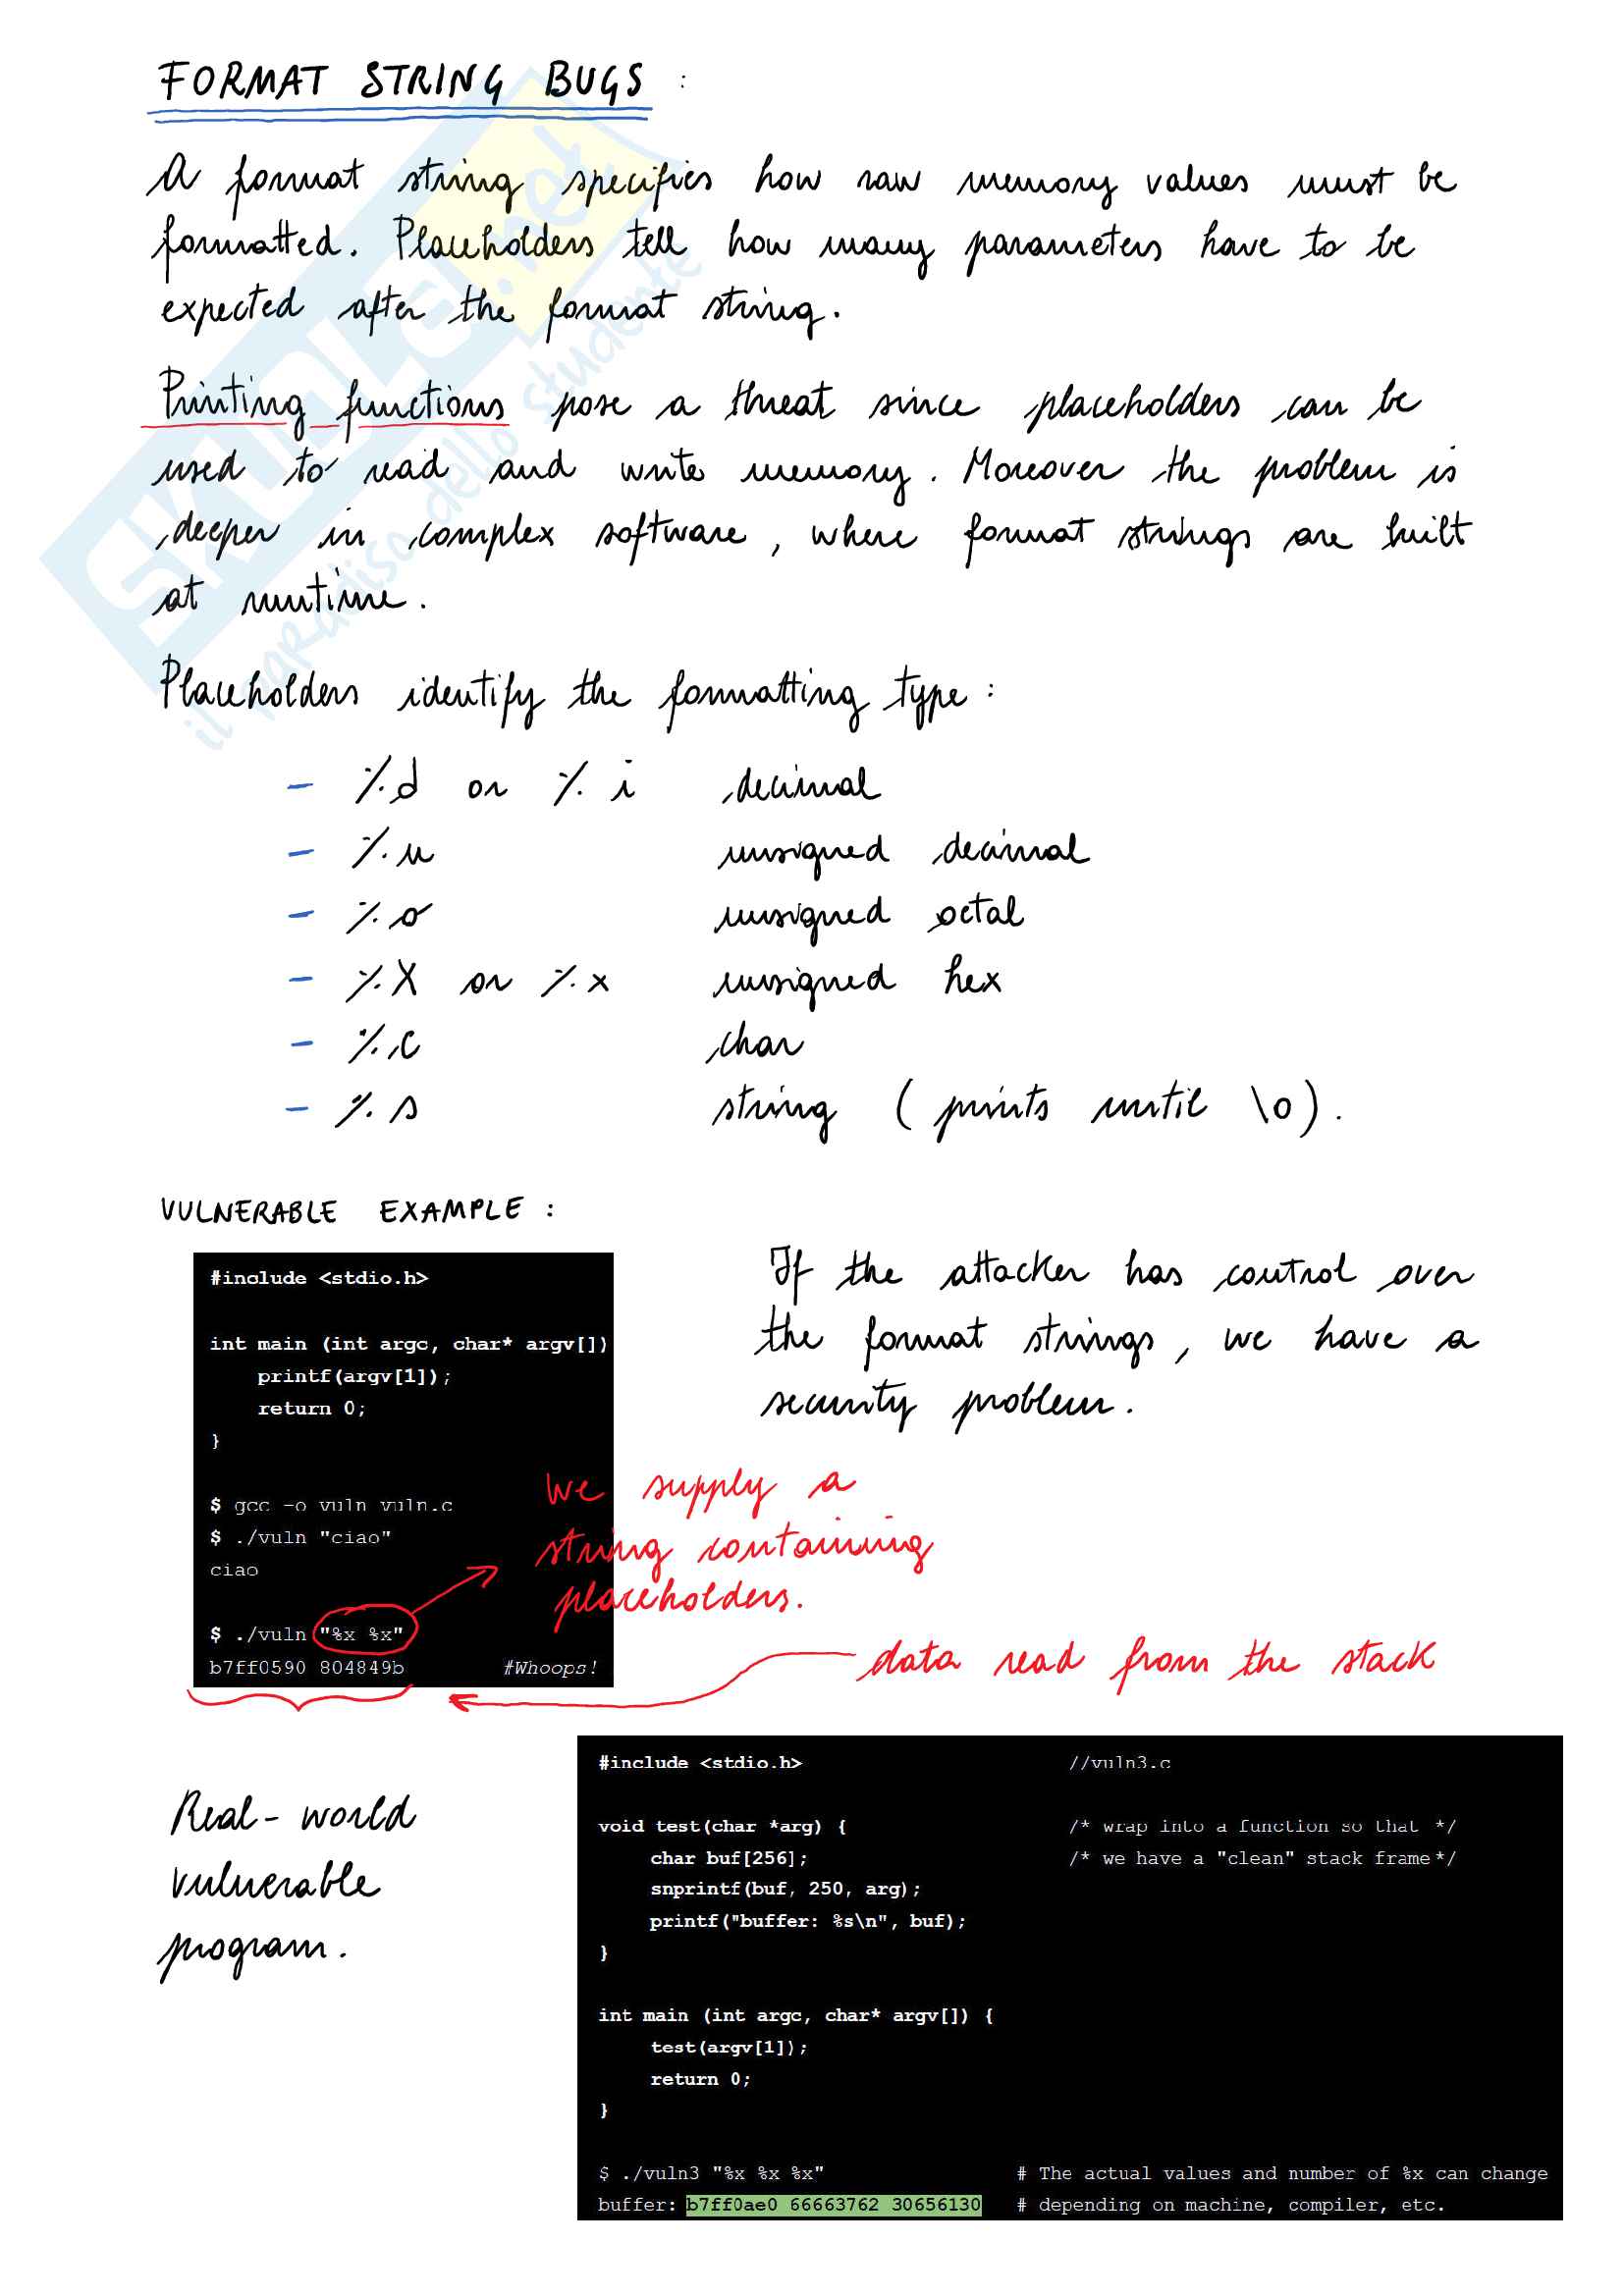 FORMAT STRING BUGS :
A format string specifies how raw memory values must be
formatted. Placeholders tell how many parameters have to be
expected after the format string.
Printing functions pose a threat since placeholders can be
used to read and write memory. Moreover the problem is
deeper in complex software, where format strings are built
at runtime.
Placeholders identify the formatting type:
- %d or %i decimal
- %u unsigned decimal
- %o unsigned octal
- %X or %x unsigned hex
- %c char
- %s string (prints until \0).
SKUOLA.net
il paradiso dello studente
VULNERABLE EXAMPLE :
#include <stdio.h>
int main (int argc, char* argv[])
printf(argv[1]);
return 0;
}
$ gcc -o vuln vuln.c
$ ./vuln "ciao"
ciao
$ ./vuln "%x %x"
b7ff0590 804849b #Whoops!
If the attacker has control over
the format strings, we have a
security problem.
We supply a
string containing
placeholders.
data read from the stack
Real-world
vulnerable
program.
#include <stdio.h> //vuln3.c
void test(char *arg) { /* wrap into a function so that */
char buf[256]; /* we have a "clean" stack frame */
snprintf(buf, 250, arg);
printf("buffer: %s\n", buf);
}
int main (int argc, char* argv[]) {
test(argv[1]);
return 0;
}
$ ./vuln3 "%x %x %x" # The actual values and number of %x can change
buffer: b7ff0ae0 66663762 30656130 # depending on machine, compiler, etc.